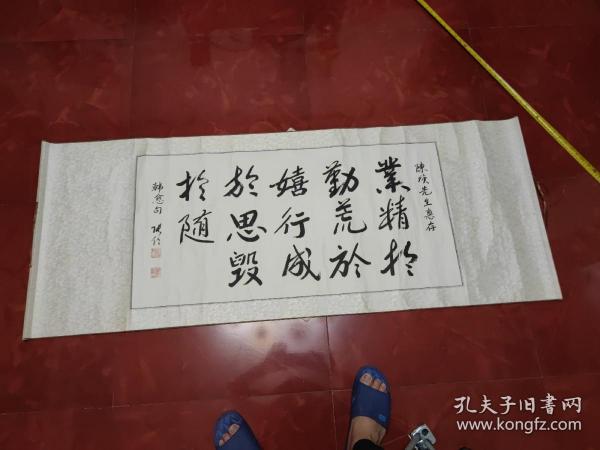 陳瑛先生惠存
業精於
勤荒於
嬉行成
於思毀
於随
韓愈句
孔夫子旧书网
www.kongfz.com